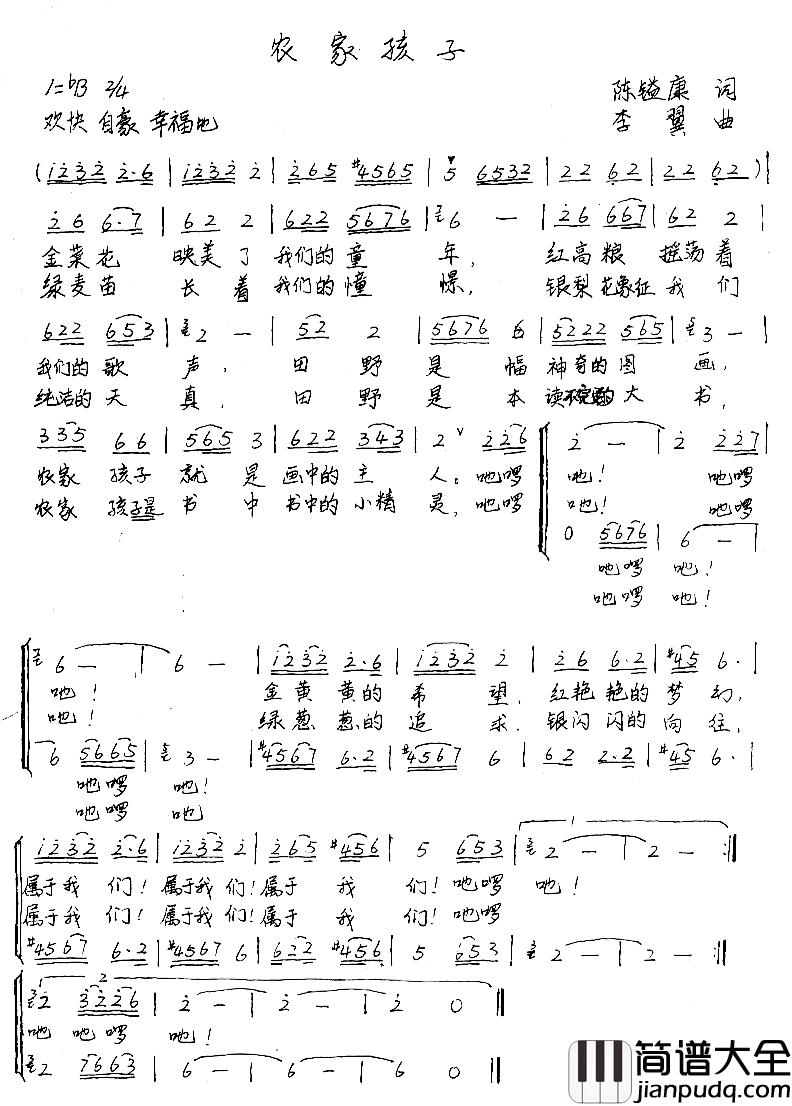 农家孩子
1=♭B 2/4
陈镒康 词
欢快 自豪 幸福地
李翼 曲
(i̇2̇3̇2̇ 2̇·6 | i̇2̇3̇2̇ 2̇ | 2̇65 #4565 | 5 6532 | 22 62 | 22 62 )|
2̇6 6·7 | 62 2 | 622 5676 | 6 — | 2̇6 667 | 62 2 |
金菜花 映美了 我们的童年, 红高粮 摇荡着
绿麦苗 长着 我们的憧憬, 银梨花象征我们
622 653 | 2 — | 52 2 | 5676 6 | 5222 565 | 3 — |
我们的歌声, 田野是幅神奇的图画,
纯洁的天真, 田野是本读不完的大书,
335 66 | 565 3 | 622 343 | 2 ∨ 2̇2̇6 | 2̇ — | 2̇ 2̇2̇7 |
农家孩子就是画中的主人。吔啰吔! 吔啰
农家孩子是书中书中的小精灵,吔啰吔! 吔啰
0 5676 | 6 — |
吔啰吔!
吔啰吔!
6 — | 6 — | i̇2̇3̇2̇ 2̇·6 | i̇2̇3̇2̇ 2̇ | 2̇6 6·2 | #45 6· |
吔! 金黄黄的希望,红艳艳的梦幻,
吔! 绿葱葱的追求,银闪闪的向往,
6 5665 | 3 — | #4567 6·2 | #4567 6 | 62 2·2 | #45 6· |
吔啰吔!
吔啰吔
i̇2̇3̇2̇ 2̇·6 | i̇2̇3̇2̇ 2̇ | 2̇65 #456 | 5 653 | 1 2 — | 2 — :‖
属于我们!属于我们!属于我们!吔啰吔!
属于我们!属于我们!属于我们!吔啰
#4567 6·2 | #4567 6 | 622 #456 | 5 653 | 2 — | 2 — :‖
2 2̇ 3̇2̇2̇6 | 2̇ — | 2̇ — | 2̇ 0 ‖
吔吔啰吔!
2 7663 | 6 — | 6 — | 6 0 ‖
简谱大全
jianpudq.com